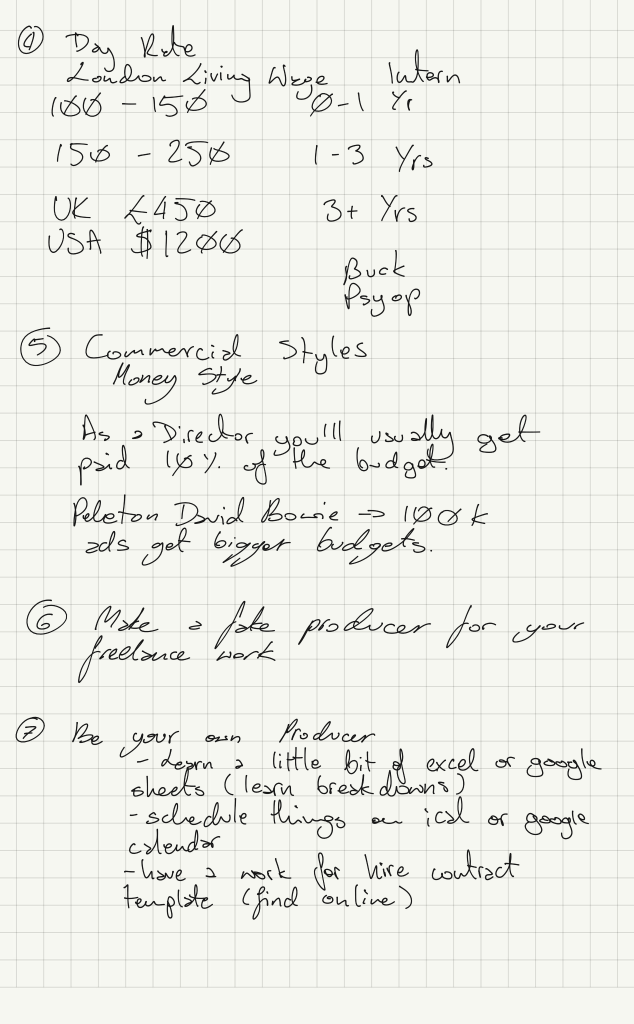 ④ Day Rate
London Living Wage Intern
100 - 150 0-1 Yr
150 - 250 1-3 Yrs
UK £450 3+ Yrs
USA $1200
Buck
Psyop
⑤ Commercial Styles
Money Style
As a Director you'll usually get
paid 10% of the budget.
Peleton David Bowie → 100k
ads get bigger budgets.
⑥ Make a fake producer for your
freelance work
⑦ Be your own Producer
- Learn a little bit of excel or google
sheets (learn breakdowns)
- schedule things on ical or google
calendar
- have a work for hire contract
template (find online)